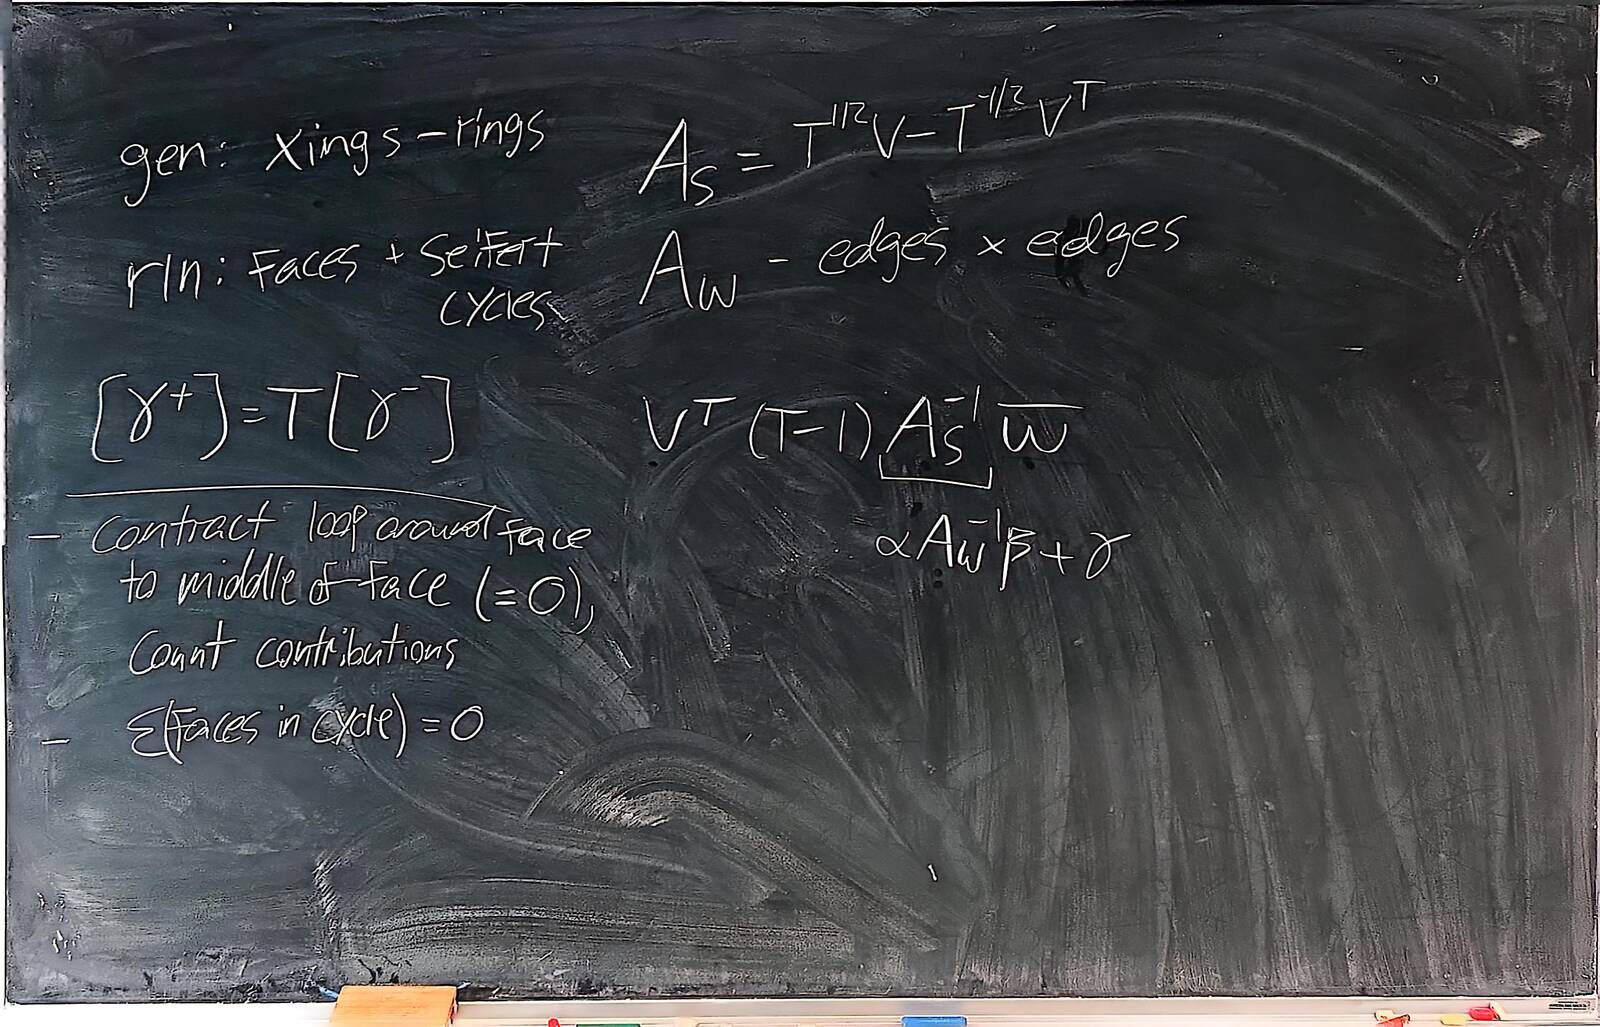 gen: Xings - rings
rln: Faces + Seifert
cycles
[γ⁺] = T[γ⁻]
- Contract loop around face
to middle of face (=0),
Count contributions
- Σ(faces in cycle) = 0
A_S = T^{1/2}V - T^{-1/2}V^T
A_W - edges × edges
V^T (T-1) A_S^{-1} w̅
αA_W^{-1}β + γ